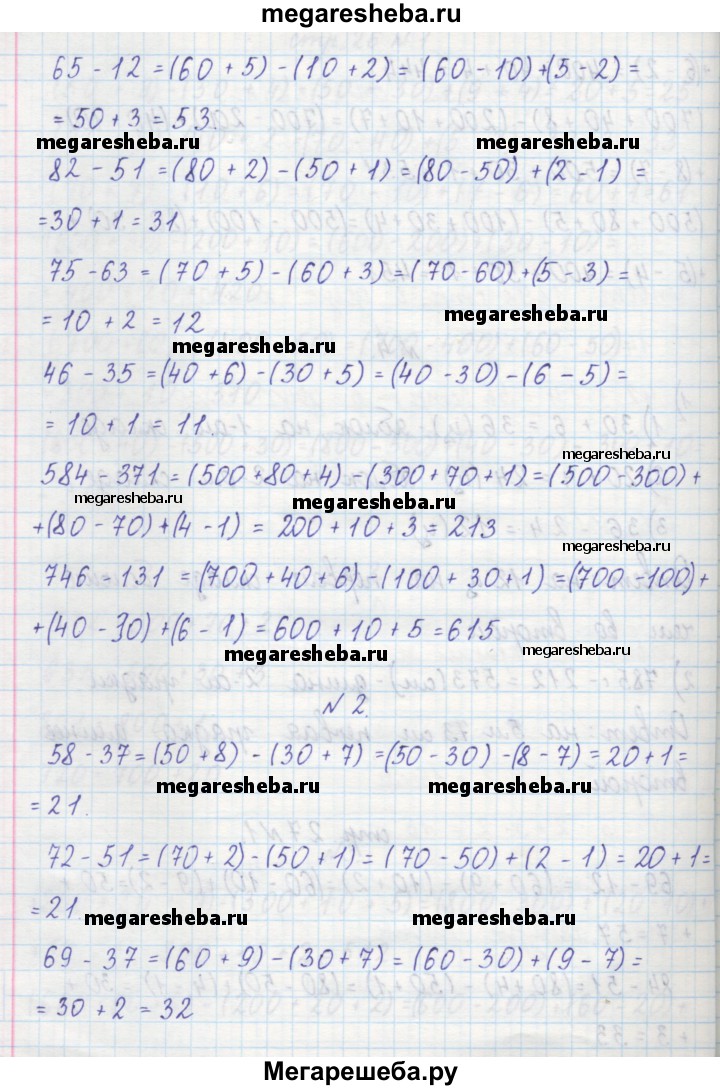 megaresheba.ru
65 - 12 = (60 + 5) - (10 + 2) = (60 - 10) + (5 - 2) =
= 50 + 3 = 53.
megaresheba.ru megaresheba.ru
82 - 51 = (80 + 2) - (50 + 1) = (80 - 50) + (2 - 1) =
= 30 + 1 = 31
75 - 63 = (70 + 5) - (60 + 3) = (70 - 60) + (5 - 3) =
= 10 + 2 = 12
megaresheba.ru
megaresheba.ru
46 - 35 = (40 + 6) - (30 + 5) = (40 - 30) - (6 - 5) =
= 10 + 1 = 11.
megaresheba.ru
584 - 371 = (500 + 80 + 4) - (300 + 70 + 1) = (500 - 300) +
megaresheba.ru megaresheba.ru
+ (80 - 70) + (4 - 1) = 200 + 10 + 3 = 213
megaresheba.ru
746 - 131 = (700 + 40 + 6) - (100 + 30 + 1) = (700 - 100) +
+ (40 - 30) + (6 - 1) = 600 + 10 + 5 = 615
megaresheba.ru megaresheba.ru
№ 2.
58 - 37 = (50 + 8) - (30 + 7) = (50 - 30) - (8 - 7) = 20 + 1 =
megaresheba.ru megaresheba.ru
= 21.
72 - 51 = (70 + 2) - (50 + 1) = (70 - 50) + (2 - 1) = 20 + 1 =
= 21
megaresheba.ru megaresheba.ru
69 - 37 = (60 + 9) - (30 + 7) = (60 - 30) + (9 - 7) =
= 30 + 2 = 32
Мегарешеба.ру